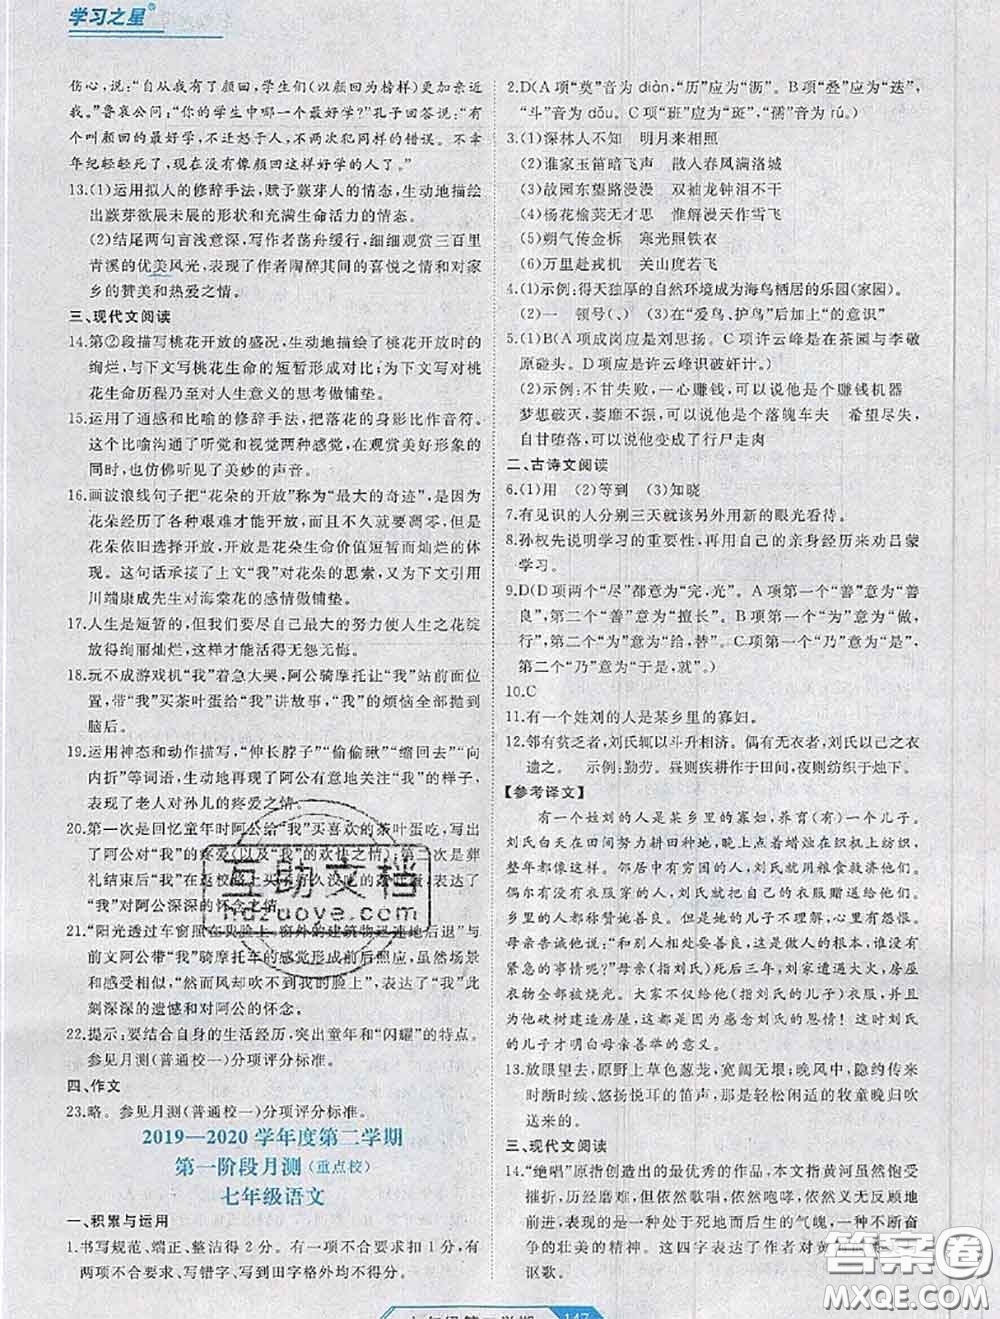 学习之星®
伤心,说:“自从我有了颜回,学生们(以颜回为榜样)更加亲
近我。”鲁哀公问:“你的学生中哪一个最好学?”孔子回答说:“有
个叫颜回的最好学,不迁怒于人,不两次犯同样的错误。不幸
年纪轻轻死了,现在没有像颜回这样好学的人了。”
13.(1)运用拟人的修辞手法,赋予蕨芽人的情态,生动地描绘
出蕨芽欲展未展的形状和充满生命活力的情态。
(2)结尾两句言浅意深,写作者荡舟缓行,细细观赏三百里
青溪的优美风光,表现了作者陶醉其间的喜悦之情和对家
乡的赞美和热爱之情。
三、现代文阅读
14.第②段描写桃花开放的盛况,生动地描绘了桃花开放时的
绚烂,与下文写桃花生命的短暂形成对比,为下文写对桃
花生命历程乃至对人生意义的思考做铺垫。
15.运用了通感和比喻的修辞手法,把落花的身影比作音符。
这个比喻沟通了听觉和视觉两种感觉,在观赏美好形象的
同时,也仿佛听见了美妙的声音。
16.画波浪线句子把“花朵的开放”称为“最大的奇迹”,是因为
花朵经历了各种艰难才能开放,而开放就要凋零。但是
花朵依旧选择开放,开放是花朵生命价值短暂而灿烂的体
现。这句话承接了上文“我”对花朵的思索,又为下文引用
川端康成先生对海棠花的感情做铺垫。
17.人生是短暂的,但我们要尽自己最大的努力使人生之花绽
放得绚丽灿烂,这样才能活得无怨无悔。
18.玩不成游戏机“我”急着大哭,阿公骑摩托让“我”站前面兜
风,带“我”买茶叶蛋给“我”讲故事,“我”的烦恼全部抛到
脑后。
19.运用神态和动作描写,“伸长脖子”“偷偷瞅”“缩回去”“向
内折”等词语,生动地写出了阿公有意地关注“我”的样子,
表现了老人对孙儿的疼爱之情。
20.第一次是回忆童年时阿公给“我”买喜欢的茶叶蛋吃,写出
了阿公对“我”的疼爱(以及“我”的欢快之情);第二次是葬
礼结束后“我”在
了“我”对阿公深深的怀念之情。
21.“阳光透过车窗照在我脸上,窗外的建筑物迅速地后退”与
前文阿公带“我”骑摩托车的感觉形成前后照应,虽然情景
感受相似,“然而风却吹不到我的脸上”,代表了“我”此
刻深深的遗憾和对阿公的怀念。
22.提示:要结合自身的生活经历,突出童年和“闪耀”的特点。
参见月测(普通校一)分项评分标准。
四、作文
23.略。参见月测(普通校一)分项评分标准。
2019—2020学年度第二学期
第一阶段月测(重点校)
七年级语文
一、积累与运用
1.书写规范、端正、整洁得2分。有一项不合要求扣1分,有
两项不合要求、写错字、写到田字格外均不得分。
2.D(A项“奠”音为diàn,“历”应为“沥”。B项“叠”应为“迭”,
“斗”音为dǒu。C项“班”应为“斑”,“儒”音为rú。)
3.(1)深林人不知 明月来相照
(2)谁家玉笛暗飞声 散入春风满洛城
(3)故园东望路漫漫 双袖龙钟泪不干
(4)杨花榆荚无才思 惟解漫天作雪飞
(5)朔气传金柝 寒光照铁衣
(6)万里赴戎机 关山度若飞
4.(1)示例:得天独厚的自然环境成为海鸟栖居的乐园(家园)。
(2)一 顿号(、) (3)在“爱鸟、护鸟”后加上“的意识”
5.(1)B(A项成岗应是刘思扬。C项许云峰是在茶园与李敬
原碰头。D项应是许云峰识破奸计。)
(2)示例:不甘失败,一心赚钱,可以说他是个赚钱机器
梦想破灭,萎靡不振,可以说他是个落魄车夫 希望尽失,
自甘堕落,可以说他变成了行尸走肉
二、古诗文阅读
6.(1)用 (2)等到 (3)知晓
7.有见识的人分别三天就该另外用新的眼光看待。
8.孙权先说明学习的重要性,再用自己的亲身经历来劝吕蒙
学习。
9.D(D项两个“尽”都意为“完,光”。A项第一个“善”意为“善
良”,第二个“善”意为“擅长”。B项第一个“为”意为“做,
行”,第二个“为”意为“给,替”。C项第一个“乃”意为“是”,
第二个“乃”意为“于是,就”。)
10.C
11.有一个姓刘的人是某乡里的寡妇。
12.邻有贫乏者,刘氏辄以斗升相济。偶有无衣者,刘氏以己之衣
遗之。 示例:勤劳。昼则疾耕作于田间,夜则纺织于烛下。
【参考译文】
有一个姓刘的人是某乡里的寡妇,养育(有)一个儿子。
刘氏白天在田间努力耕田种地,晚上点着蜡烛在织机上纺织,
整年都像这样。邻居中有贫穷的人,刘氏就用粮食救济他们。
偶尔有没有衣服穿的人,刘氏就把自己的衣服赠送给他们。
乡里的人都称赞她善良。但是她的儿子不理解,心里有些怨恨。
母亲告诫他说:“和别人为善,这是做人的根本,谁没有
紧急的事情呢?”母亲(指刘氏)死后三年,刘家遭遇大火,房屋
衣物全部被烧光。大家不仅给他(指刘氏的儿子)衣服,并且
为他砍树建造房屋,这都是感念刘氏的恩情!这时刘氏
的儿子才明白母亲行善的意义。
13.放眼望去,原野上草色葱茏,宽阔无垠;晚风中,隐约传来
时断时续、悠扬悦耳的笛声,那是轻松闲适的牧童晚归吹
送来的。
三、现代文阅读
14.“绝唱”原指创造出的最优秀的作品,本文指黄河虽然饱受
摧折,历经磨难,但依然歌唱,依然奔腾,依然义无反顾地
前进,表现的是一种处于死地而后生的气魄,一种力争
的壮美的精神。这四字表达了作者对黄
讴歌。
147
互助文档
hdzuoye.com
答案圈
MXQE.COM